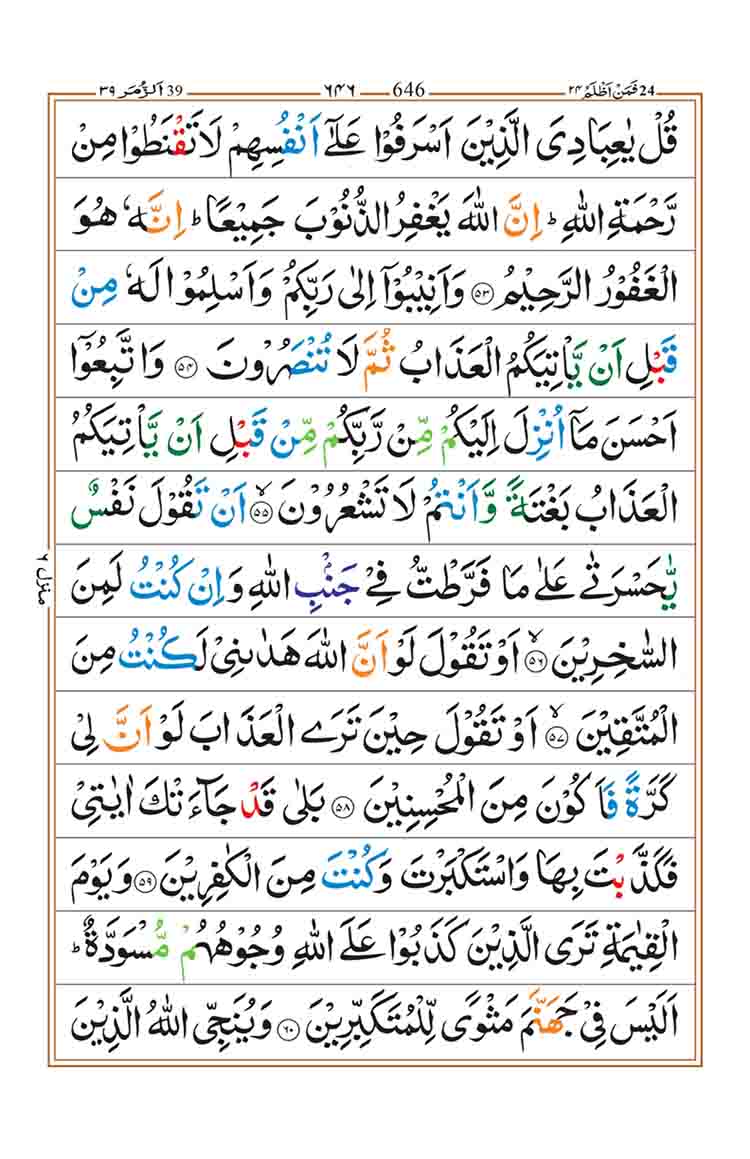 فَمَنْ اَظْلَمُ ٢٤ 24 646 ٦٤٦ اَلزُّمَر ٣٩ 39
قُلْ يٰعِبَادِىَ الَّذِيْنَ اَسْرَفُوْا عَلٰٓى اَنْفُسِهِمْ لَا تَقْنَطُوْا مِنْ
رَّحْمَةِ اللّٰهِ ؕ اِنَّ اللّٰهَ يَغْفِرُ الذُّنُوْبَ جَمِيْعًا ؕ اِنَّهٗ هُوَ
الْغَفُوْرُ الرَّحِيْمُ ۝٥٣ وَاَنِيْبُوْٓا اِلٰى رَبِّكُمْ وَاَسْلِمُوْا لَهٗ مِنْ
قَبْلِ اَنْ يَّاْتِيَكُمُ الْعَذَابُ ثُمَّ لَا تُنْصَرُوْنَ ۝٥٤ وَاتَّبِعُوْٓا
اَحْسَنَ مَآ اُنْزِلَ اِلَيْكُمْ مِّنْ رَّبِّكُمْ مِّنْ قَبْلِ اَنْ يَّاْتِيَكُمُ
الْعَذَابُ بَغْتَةً وَّاَنْتُمْ لَا تَشْعُرُوْنَ ۙ۝٥٥ اَنْ تَقُوْلَ نَفْسٌ
يّٰحَسْرَتٰى عَلٰى مَا فَرَّطْتُّ فِىْ جَنْۢبِ اللّٰهِ وَاِنْ كُنْتُ لَمِنَ
السّٰخِرِيْنَ ۙ۝٥٦ اَوْ تَقُوْلَ لَوْ اَنَّ اللّٰهَ هَدٰىنِىْ لَكُنْتُ مِنَ
الْمُتَّقِيْنَ ۙ۝٥٧ اَوْ تَقُوْلَ حِيْنَ تَرَى الْعَذَابَ لَوْ اَنَّ لِىْ
كَرَّةً فَاَكُوْنَ مِنَ الْمُحْسِنِيْنَ ۝٥٨ بَلٰى قَدْ جَآءَتْكَ اٰيٰتِىْ
فَكَذَّبْتَ بِهَا وَاسْتَكْبَرْتَ وَكُنْتَ مِنَ الْكٰفِرِيْنَ ۝٥٩ وَيَوْمَ
الْقِيٰمَةِ تَرَى الَّذِيْنَ كَذَبُوْا عَلَى اللّٰهِ وُجُوْهُهُمْ مُّسْوَدَّةٌ ؕ
اَلَيْسَ فِىْ جَهَنَّمَ مَثْوًى لِّلْمُتَكَبِّرِيْنَ ۝٦٠ وَيُنَجِّى اللّٰهُ الَّذِيْنَ
منزل ٦